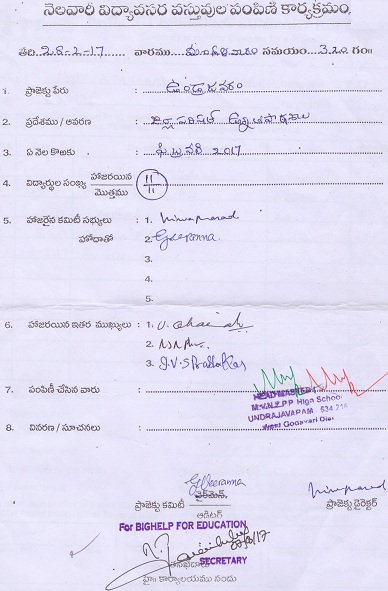 నెలవారీ విద్యావసర వస్తువుల పంపిణీ కార్యక్రమం.
తేది 28-2-17 వారము మంగళవారం సమయం 3.20 గం॥
1. ప్రాజెక్టు పేరు : ఉండ్రాజవరం
2. ప్రదేశము / ఆవరణ : జిల్లా పరిషత్ ఉన్నత పాఠశాల
3. ఏ నెల కొఱకు : ఫిబ్రవరి 2017
4. విద్యార్థుల సంఖ్య హాజరయిన / మొత్తము : 11/11
5. హాజరైన కమిటీ సభ్యులు : 1.
హోదాతో 2. G.Veeranna
3.
4.
5.
6. హాజరయిన ఇతర ముఖ్యులు : 1.
2.
3. D.V.S Prabhakar
7. పంపిణీ చేసిన వారు :
HEAD MASTER
M.V.N.Z.P.P High School
UNDRAJAVARAM 534 216
West Godavari Dist
8. వివరణ / సూచనలు :
G.Veeranna
ప్రాజెక్టు కమిటీ ఛైర్మెన్,
ఆడిటర్
ప్రాజెక్టు డైరెక్టర్
For BIGHELP FOR EDUCATION
SECRETARY
హై॥ కార్యాలయము నందు